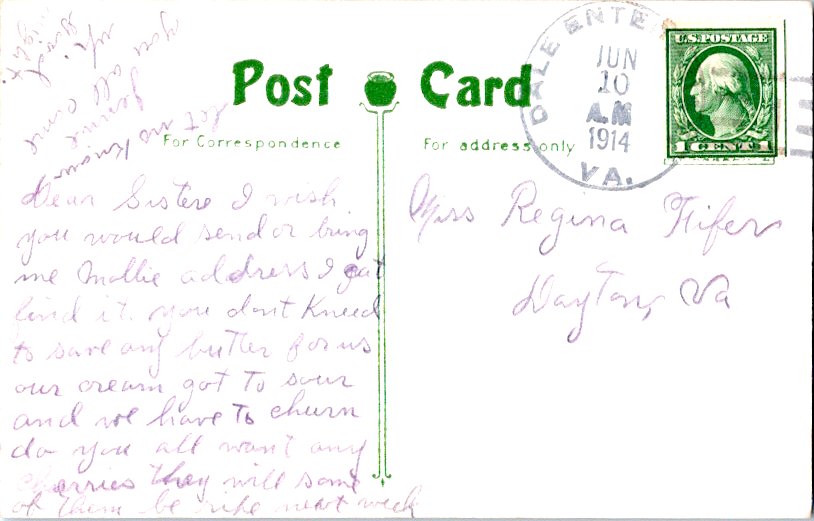 Post Card
For Correspondence
For address only
DALE ENTER
JUN
10
A.M
1914
VA.
U.S. POSTAGE
1 CENT 1
Miss Regina Fifer
Dayton, Va
Dear Sistere I wish
you would send or bring
me Mollie address I cat
find it. you dont Kneed
to save any butter for us
our cream got to sour
and we have to churn
do you all want any
cherries they will some
of them be ripe next week
let me know
Jennie
you all come
up good
night